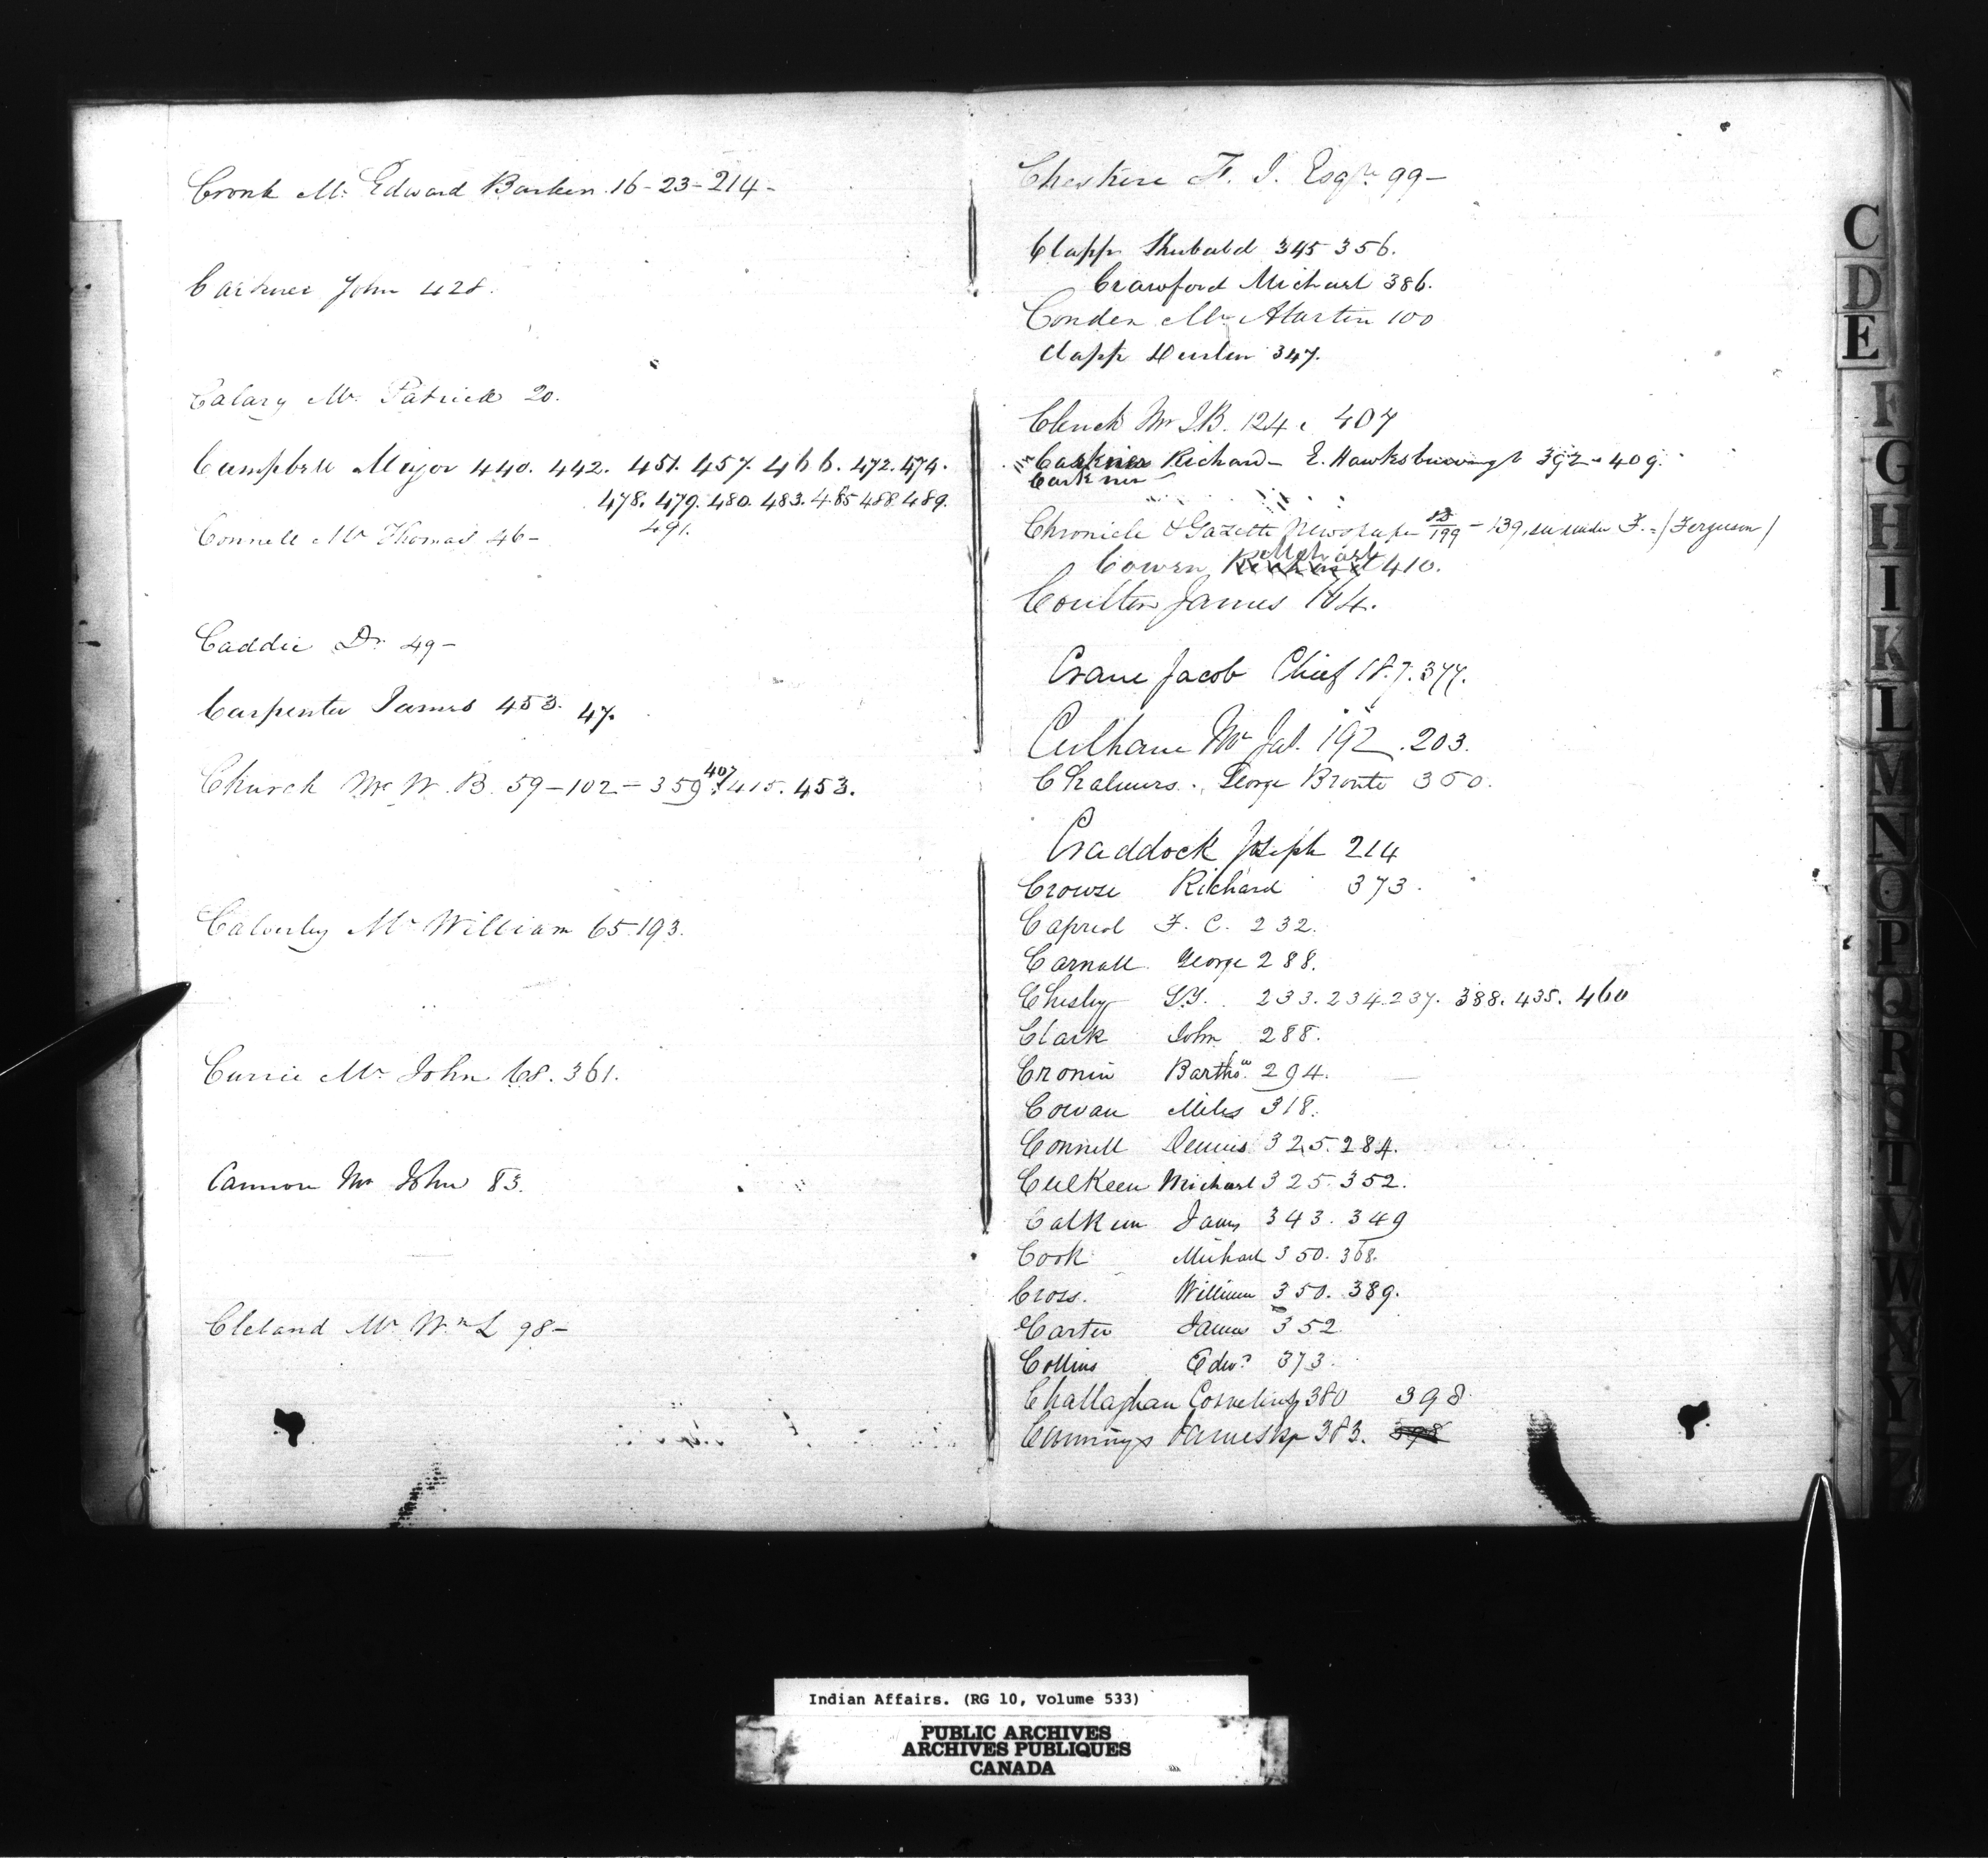 Cronk Mr. Edward Barker 16-23-214-
Carkner John 428.
Calary Mr. Patrick 20.
Campbell Major 440. 442. 451. 457. 466. 472. 474.
478. 479. 480. 483. 485 488. 489.
491.
Connell Mr Thomas 46-
Caddie Dr. 49-
Carpenter James 453. 47.
Church Mr W. B. 59-102-359. 407/415. 453.
Calverley Mr William 65.193.
Currie Mr. John 68. 361.
Cannon Mr John 83.
Cleland Mr Wm L 98-
Cheskire F. J. Esqre 99-
Clapp Shubald 345 356.
Crawford Michael 386.
Conden Mr. Martin 100
Clapp 347.
Cluck Mr J B. 124. 407
Richard - E. Hawksbury 392-409.
Carkner
Chronicle & Gazette Newspaper 199-139, see under F.-/Ferguson/
Cowen Michael 410.
Coulter James 164.
Crane Jacob Chief 187. 377.
Culhane Mr Jas. 192. 203.
Chalmers. George Bronte 350.
Craddock Joseph 214
Crowse Richard 373.
Capreol F. C. 232.
Carnall George 288.
Chesley S.Y. 233. 234. 237. 388. 435. 460
Clark John 288.
Cronin Bartho. 294.
Cowan Miles 318.
Connell Dennis 325. 284.
Culkeen Michael 325. 352.
Calkeen James 343. 349
Cook Michael 350. 368.
Cross. William 350. 389.
Carter James 352.
Collins Edwd 373.
Challaghan Cornelius 380 398
Cummings James 383. 398
C
D
E
F
G
H
I
K
L
M
N
O
P
Q
R
S
T
V
W
X
Y
Z
Indian Affairs. (RG 10, Volume 533)
PUBLIC ARCHIVES
ARCHIVES PUBLIQUES
CANADA